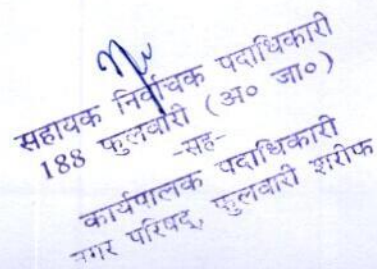 सहायक निर्वाचक पदाधिकारी
188 फुलवारी (अ० जा०)
-सह-
कार्यपालक पदाधिकारी
नगर परिषद्, फुलवारी शरीफ